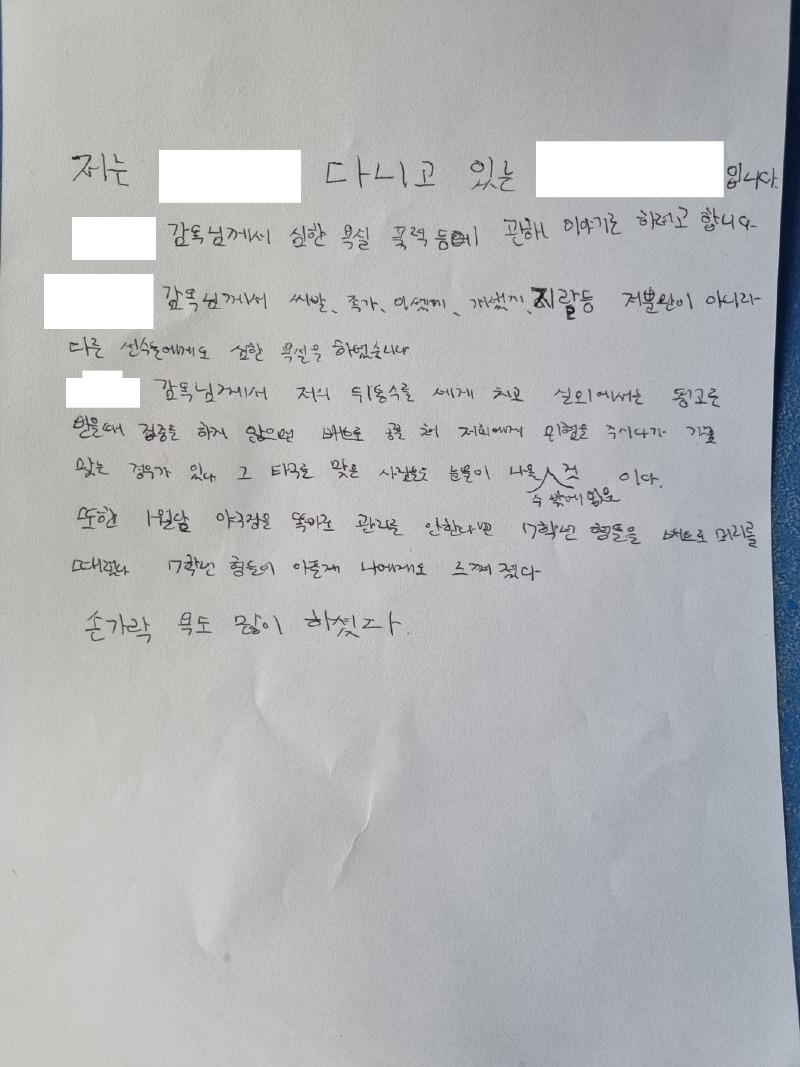 저는 다니고 있는 입니다.
감독님께서 심한 욕설 폭력 등에 관해 이야기를 하려고 합니다
감독님께서 씨발, 족가, 이셌끼, 개셌끼, 지랄등 저뿐만이 아니라
다른 선수들에게도 심한 욕설을 하였습니다
감독님께서 저의 뒤통수를 세게 치고 실외에서는 통고를
받을때 집중을 하지 않으면 배트로 공을 쳐 저희에게 위협을 주시다가 가끔
맞는 경우가 있다 그 타구를 맞은 사람들은 눈물이 나올 수 밖에 없을 것 이다.
또한 1월달 야구장을 똑바로 관리를 안한다면 17학년 형들을 배트로 머리를
때렸다 17학년 형들의 아픔게 나에게도 느껴졌다
손가락 욕도 많이 하셧다.